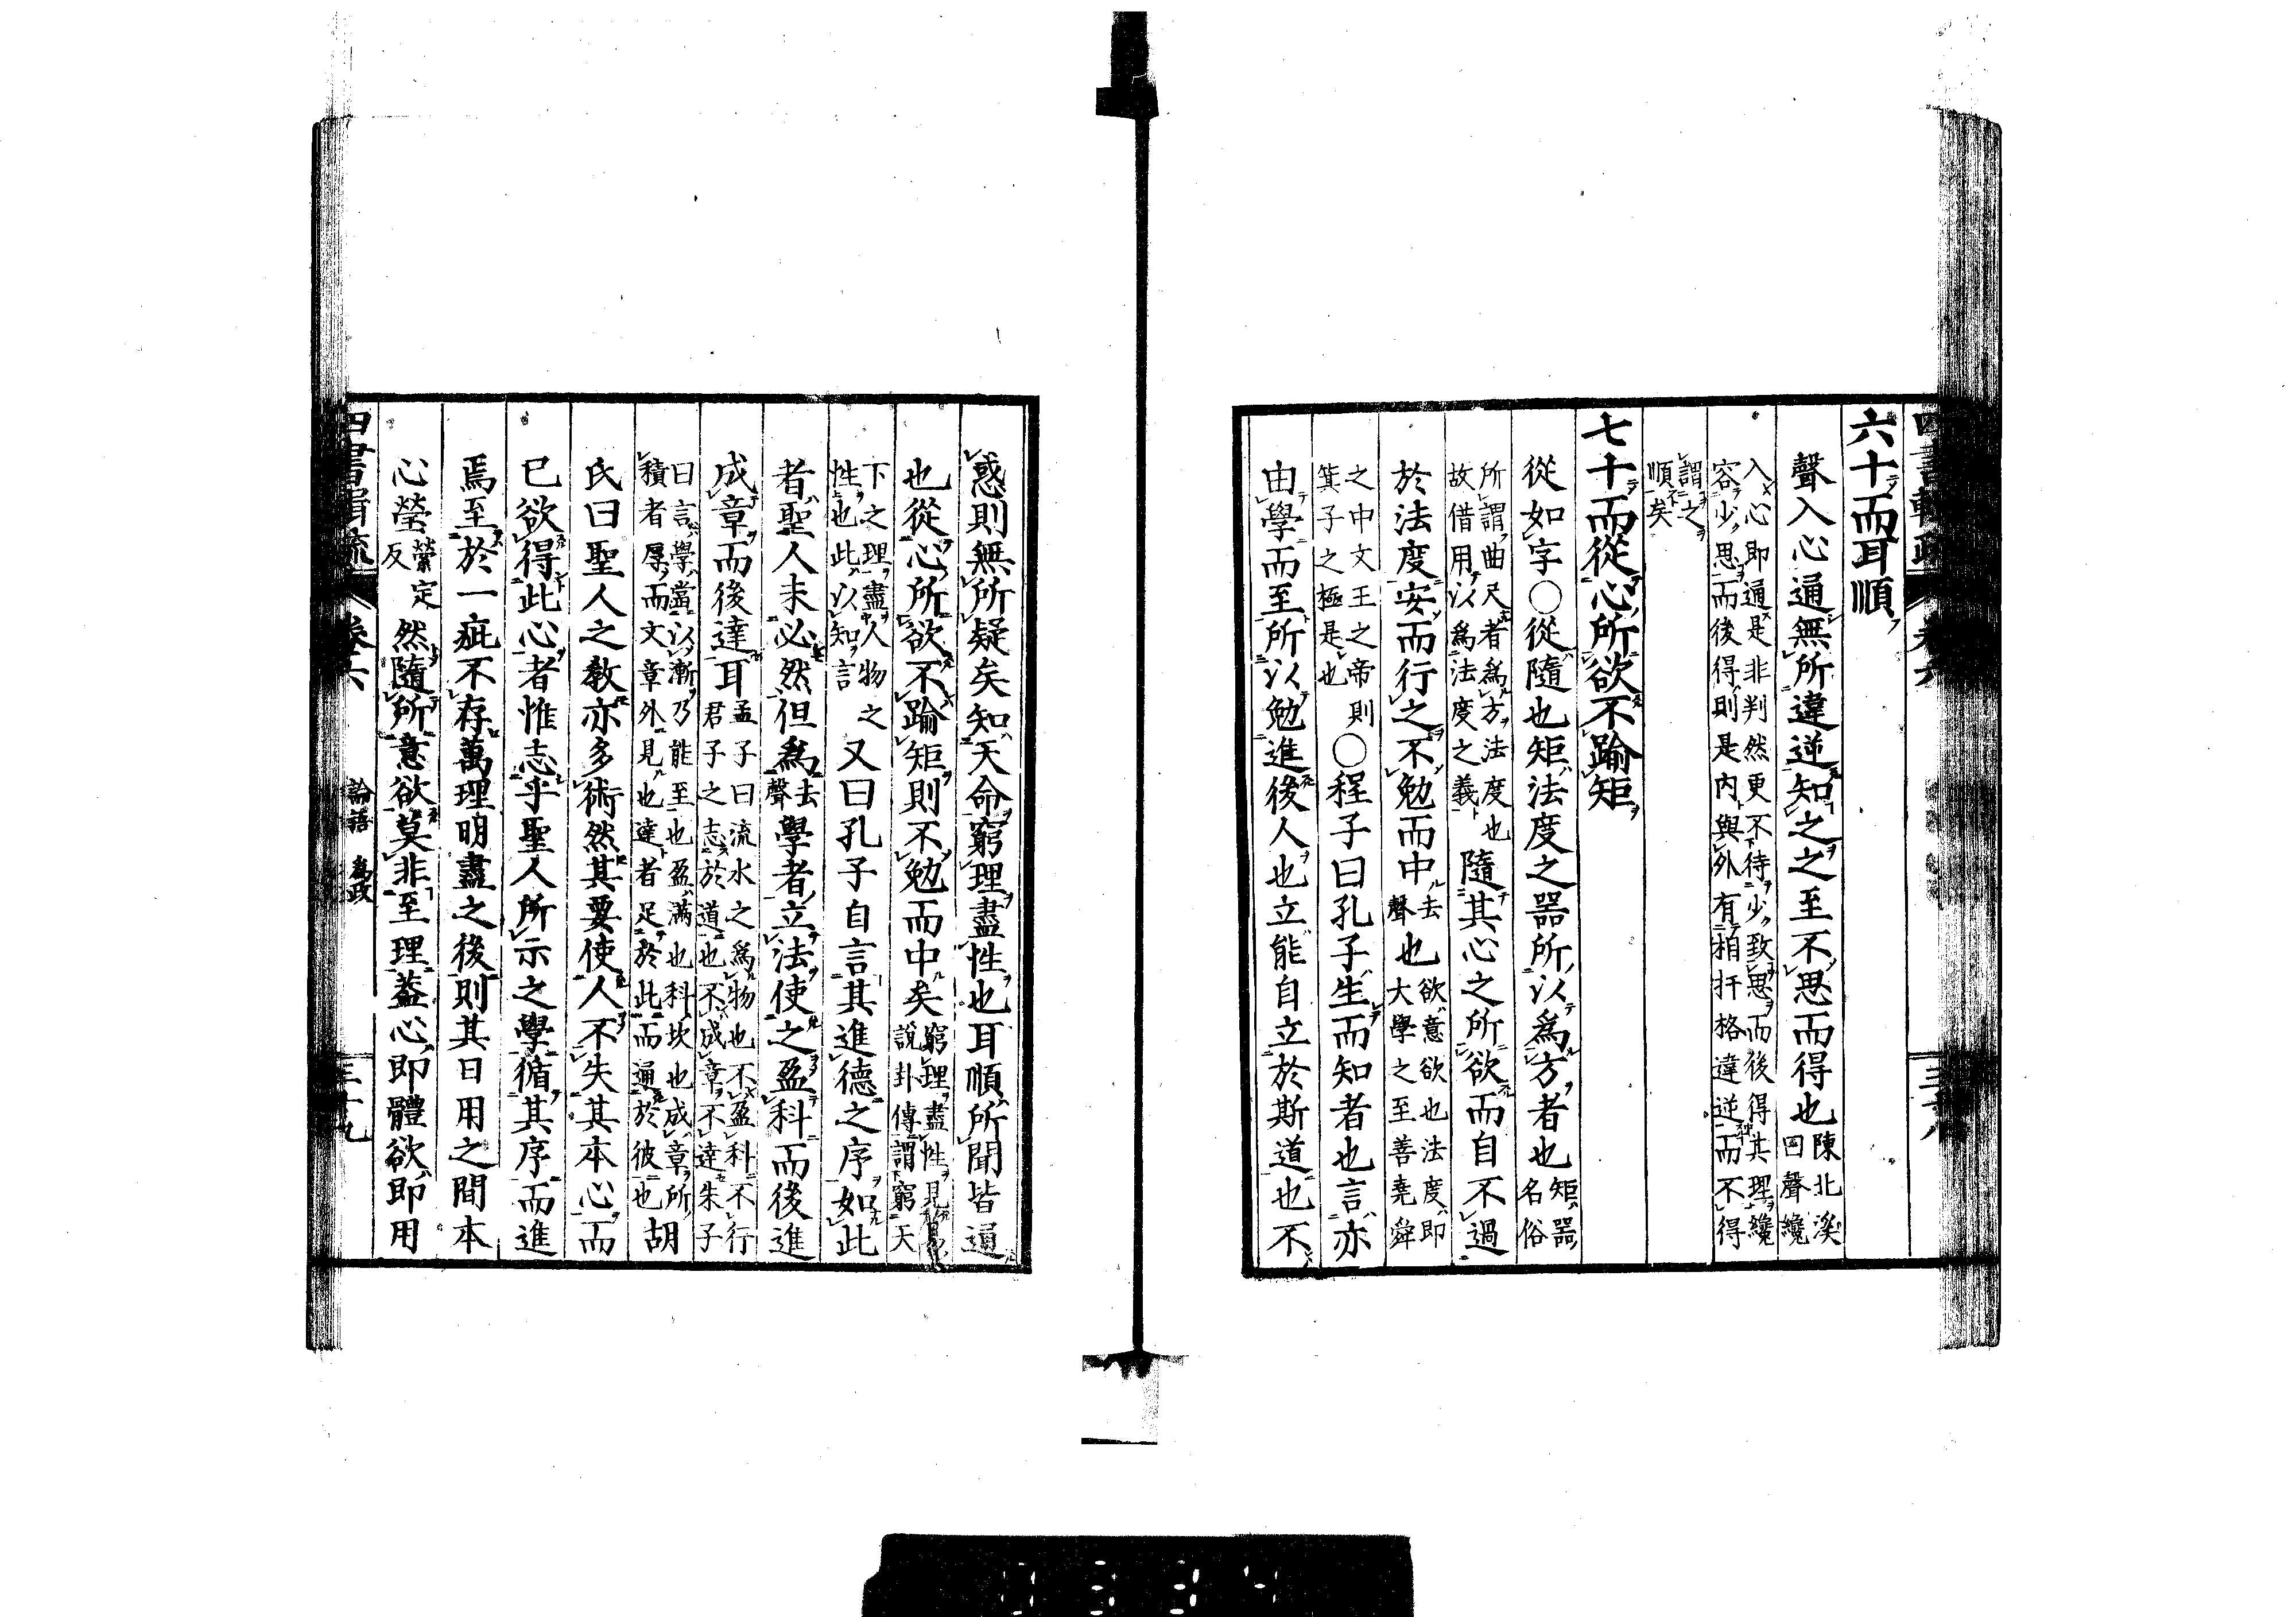 六十而耳順
聲入心通無所違逆知之之至不思而得也陳北溪曰聲纔
入心即通是非判然更不待少致思而後得其理纔
容少思而後得則是內與外有相扞格違逆而不得
謂之順矣
七十而從心所欲不踰矩
從如字○從隨也矩法度之器所以爲方者也矩器名俗
所謂曲尺者爲方法度也故借用以爲法度之義隨其心之所欲而自不過
於法度安而行之不勉而中去聲也欲意欲也法度即大學之至善堯舜
之中文王之帝則箕子之極是也○程子曰孔子生而知者也言亦
由學而至所以勉進後人也立能自立於斯道也不
惑則無所疑矣知天命窮理盡性也耳順所聞皆通
也從心所欲不踰矩則不勉而中矣窮理盡性見易說卦傳謂窮天
下之理盡人物之性也此以知言又曰孔子自言其進德之序如此
者聖人未必然但爲去聲學者立法使之盈科而後進
成章而後達耳孟子曰流水之爲物也不盈科不行君子之志於道也不成章不達朱子
曰言學當以漸乃能至也盈滿也科坎也成章所積者厚而文章外見也達者足於此而通於彼也胡
氏曰聖人之教亦多術然其要使人不失其本心而
已欲得此心者惟志乎聖人所示之學循其序而進
焉至於一疵不存萬理明盡之後則其日用之間本
心瑩縈定反然隨所意欲莫非至理蓋心即體欲即用
四書輯疏 卷六 論語 爲政 三十九